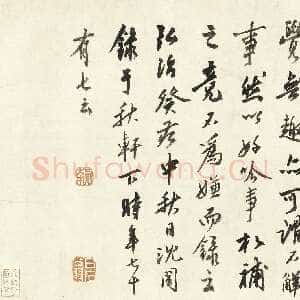 覺無趣亦可謂不解
事然以好事相補
之竟不為嫌而錄
弘治癸亥中秋日沈周
錄于秋軒下時年七十
有七云
Shufawang.CN